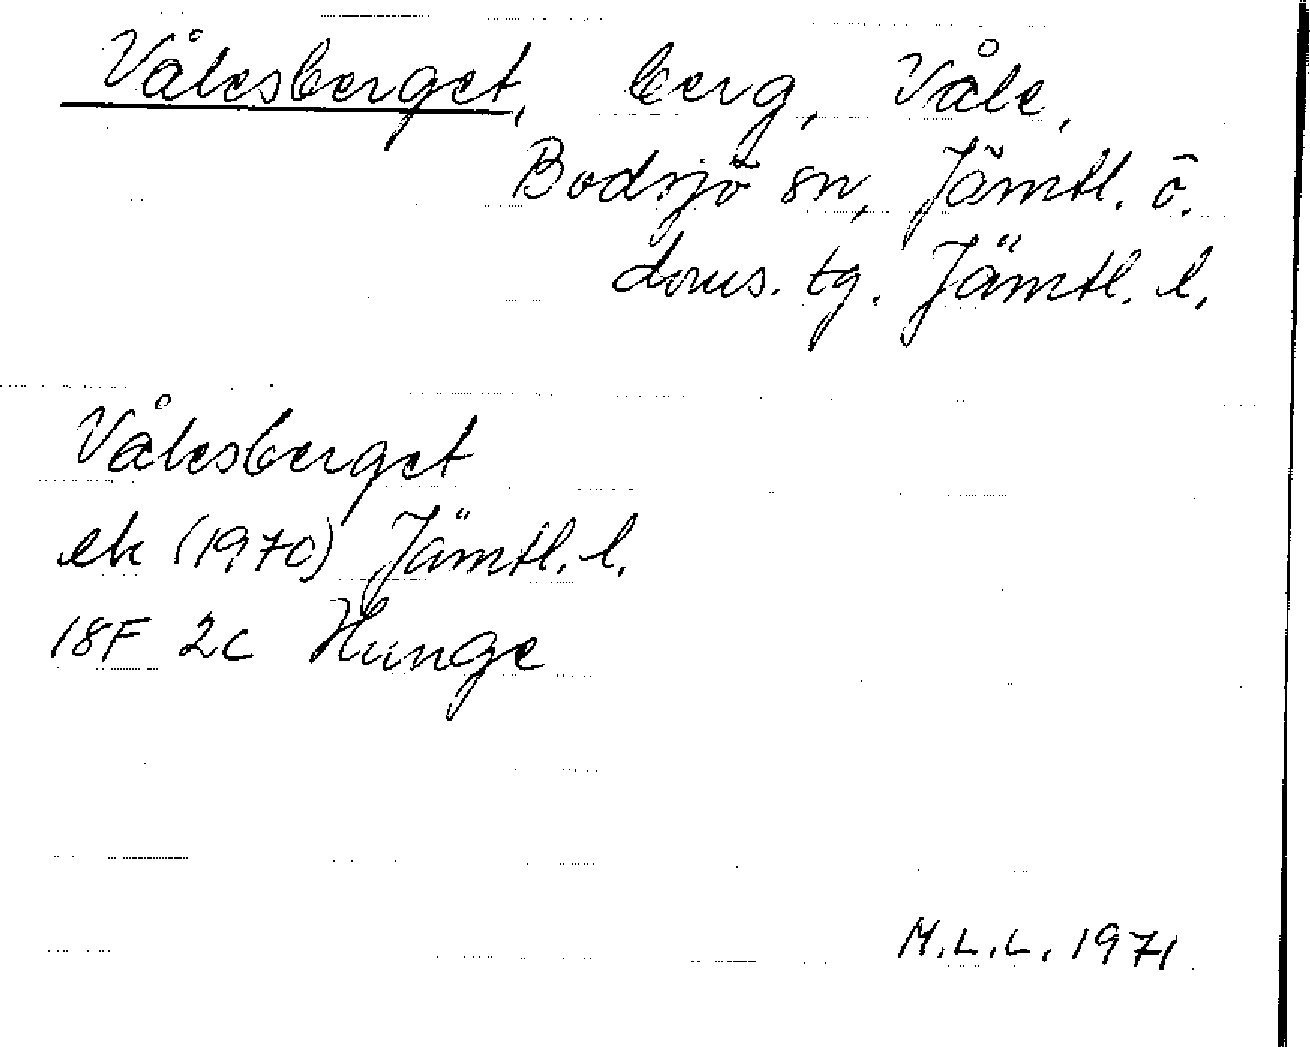 Vålesberget, berg, Våle,
Bodsjö sn, Jämtl. ö.
doms. tg. Jämtl. l.
Vålesberget
ek (1970) Jämtl. l.
18F 2c Hunge
M.L.L. 1971